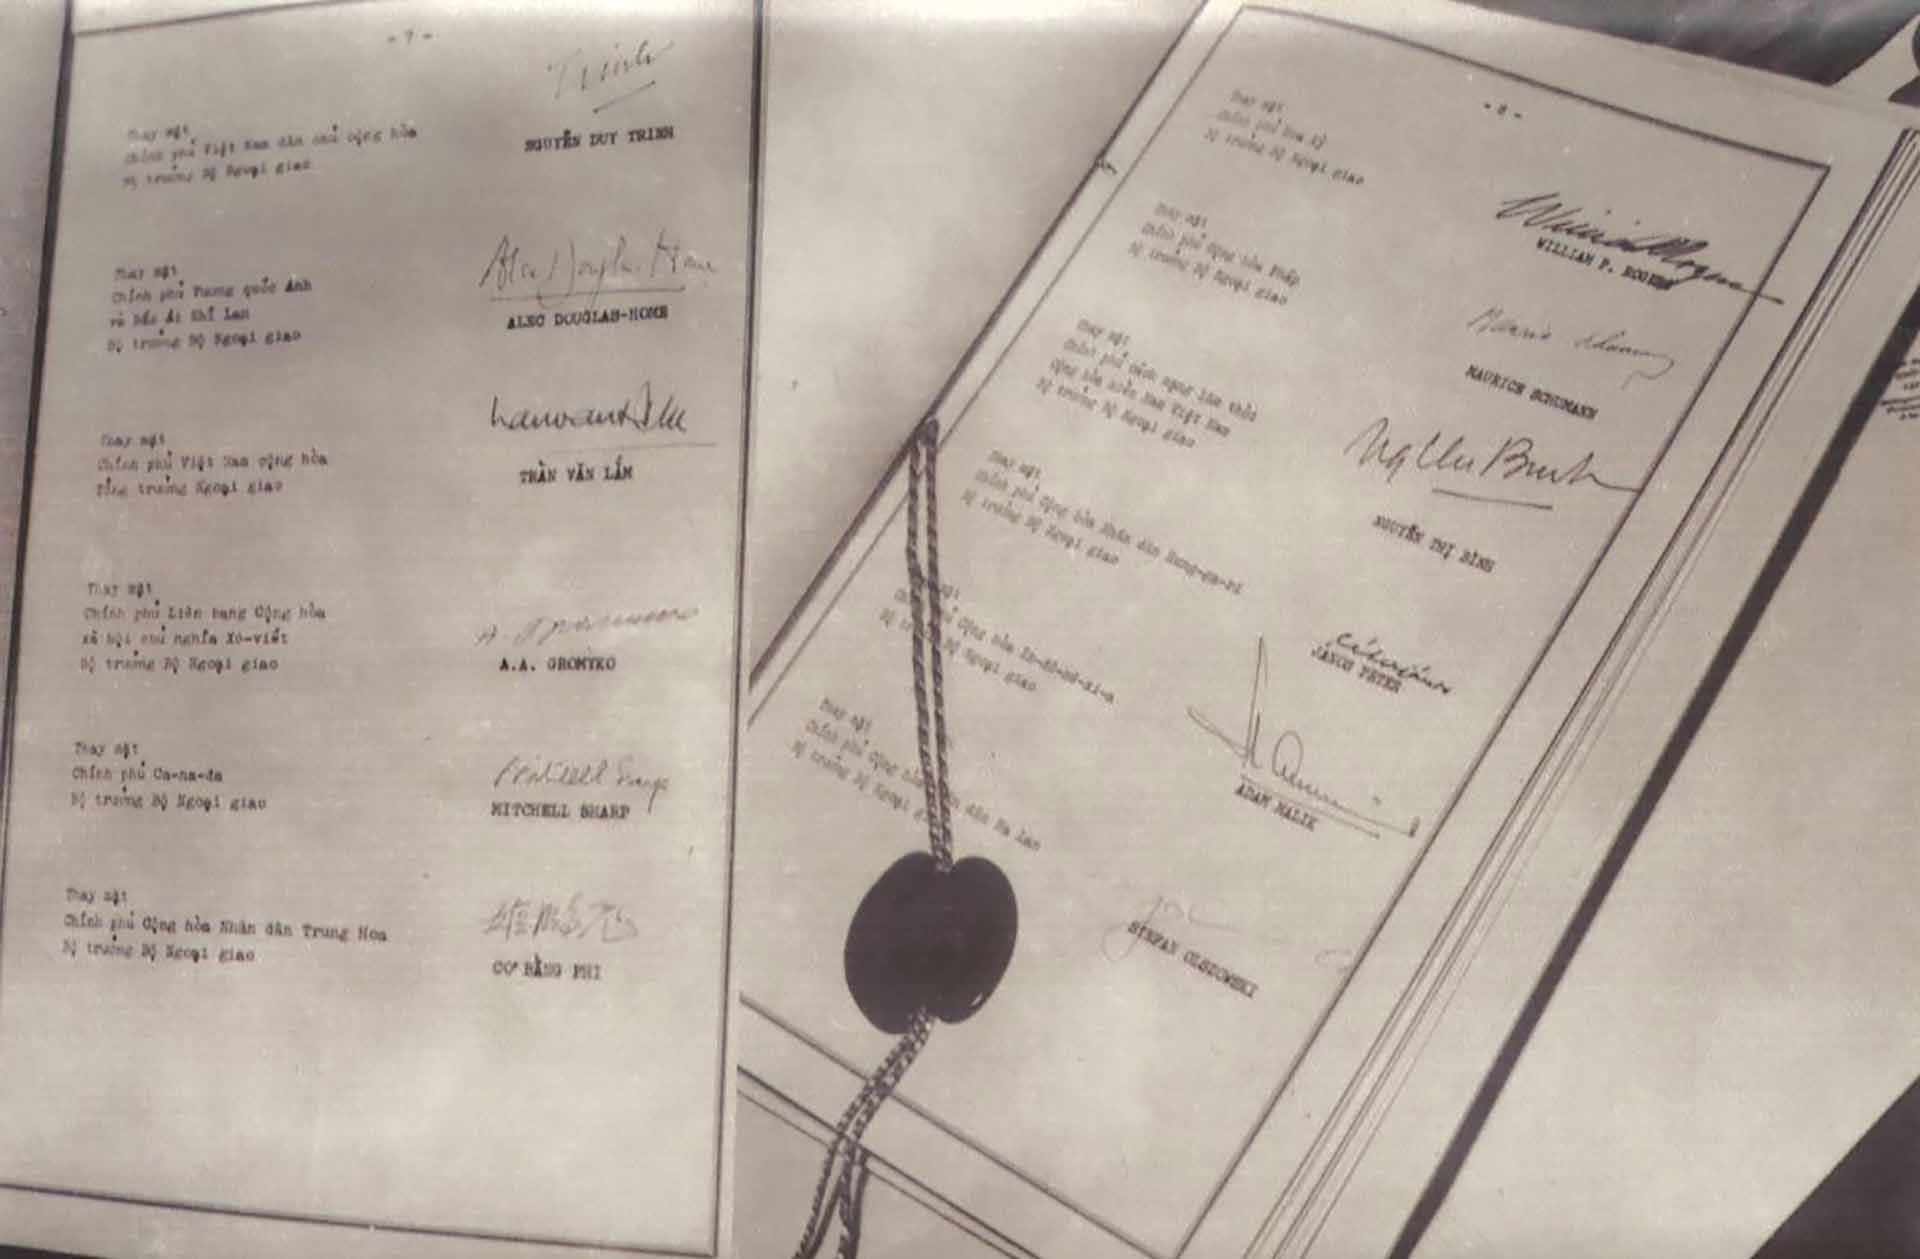 - 7 -
Trinh
Thay mặt
Chính phủ Việt Nam dân chủ cộng hòa
Bộ trưởng Bộ Ngoại giao
NGUYỄN DUY TRINH
Thay mặt
Chính phủ Vương quốc Anh
và Bắc Ái Nhĩ Lan
Bộ trưởng Bộ Ngoại giao
Alec Douglas-Home
ALEC DOUGLAS-HOME
Thay mặt
Chính phủ Việt Nam cộng hòa
Tổng trưởng Ngoại giao
TRẦN VĂN LẮM
Thay mặt
Chính phủ Liên bang Cộng hòa
xã hội chủ nghĩa Xô-viết
Bộ trưởng Bộ Ngoại giao
A.A. GROMYKO
Thay mặt
Chính phủ Ca-na-đa
Bộ trưởng Bộ Ngoại giao
Mitchell Sharp
MITCHELL SHARP
Thay mặt
Chính phủ Cộng hòa Nhân dân Trung Hoa
Bộ trưởng Bộ Ngoại giao
CƠ BẰNG PHI
- 8 -
Thay mặt
Chính phủ Hoa Kỳ
Bộ trưởng Bộ Ngoại giao
WILLIAM P. ROGERS
Thay mặt
Chính phủ Cộng hòa Pháp
Bộ trưởng Bộ Ngoại giao
MAURICE SCHUMANN
Thay mặt
Chính phủ cách mạng lâm thời
Cộng hòa miền Nam Việt Nam
Bộ trưởng Bộ Ngoại giao
Ng Thi Binh
NGUYỄN THỊ BÌNH
Thay mặt
Chính phủ Cộng hòa Nhân dân Hung-ga-ri
Bộ trưởng Bộ Ngoại giao
JANOS PETER
mặt
Chính phủ Cộng hòa In-đô-nê-xi-a
Bộ trưởng Bộ Ngoại giao
ADAM MALIK
Thay mặt
Chính phủ Cộng hòa dân Ba Lan
Bộ trưởng Bộ Ngoại
STEFAN OLSZOWSKI